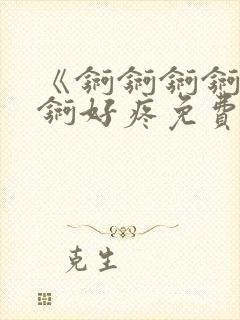 《錒錒錒錒
錒好疼免費
克生